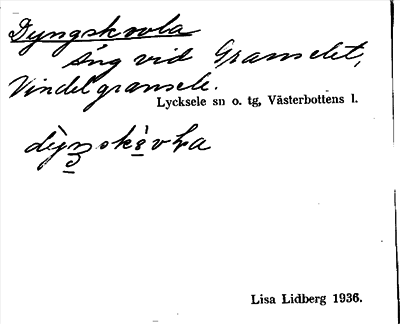 Dyngskovla
äng vid Granselet,
Vindelgransele.
Lycksele sn o. tg, Västerbottens l.
Lisa Lidberg 1936.